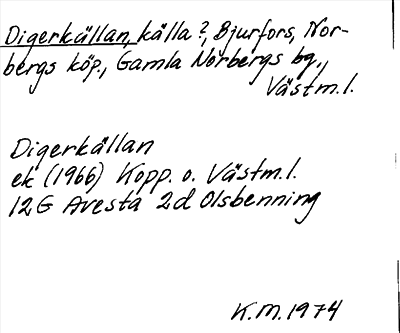 Digerkällan, källa?, Bjurfors, Nor-
bergs köp., Gamla Norbergs bg.,
Västm.l.
Digerkällan
ek (1966) Kopp. o. Västm.l.
12G Avesta 2d Olsbenning
K.M. 1974